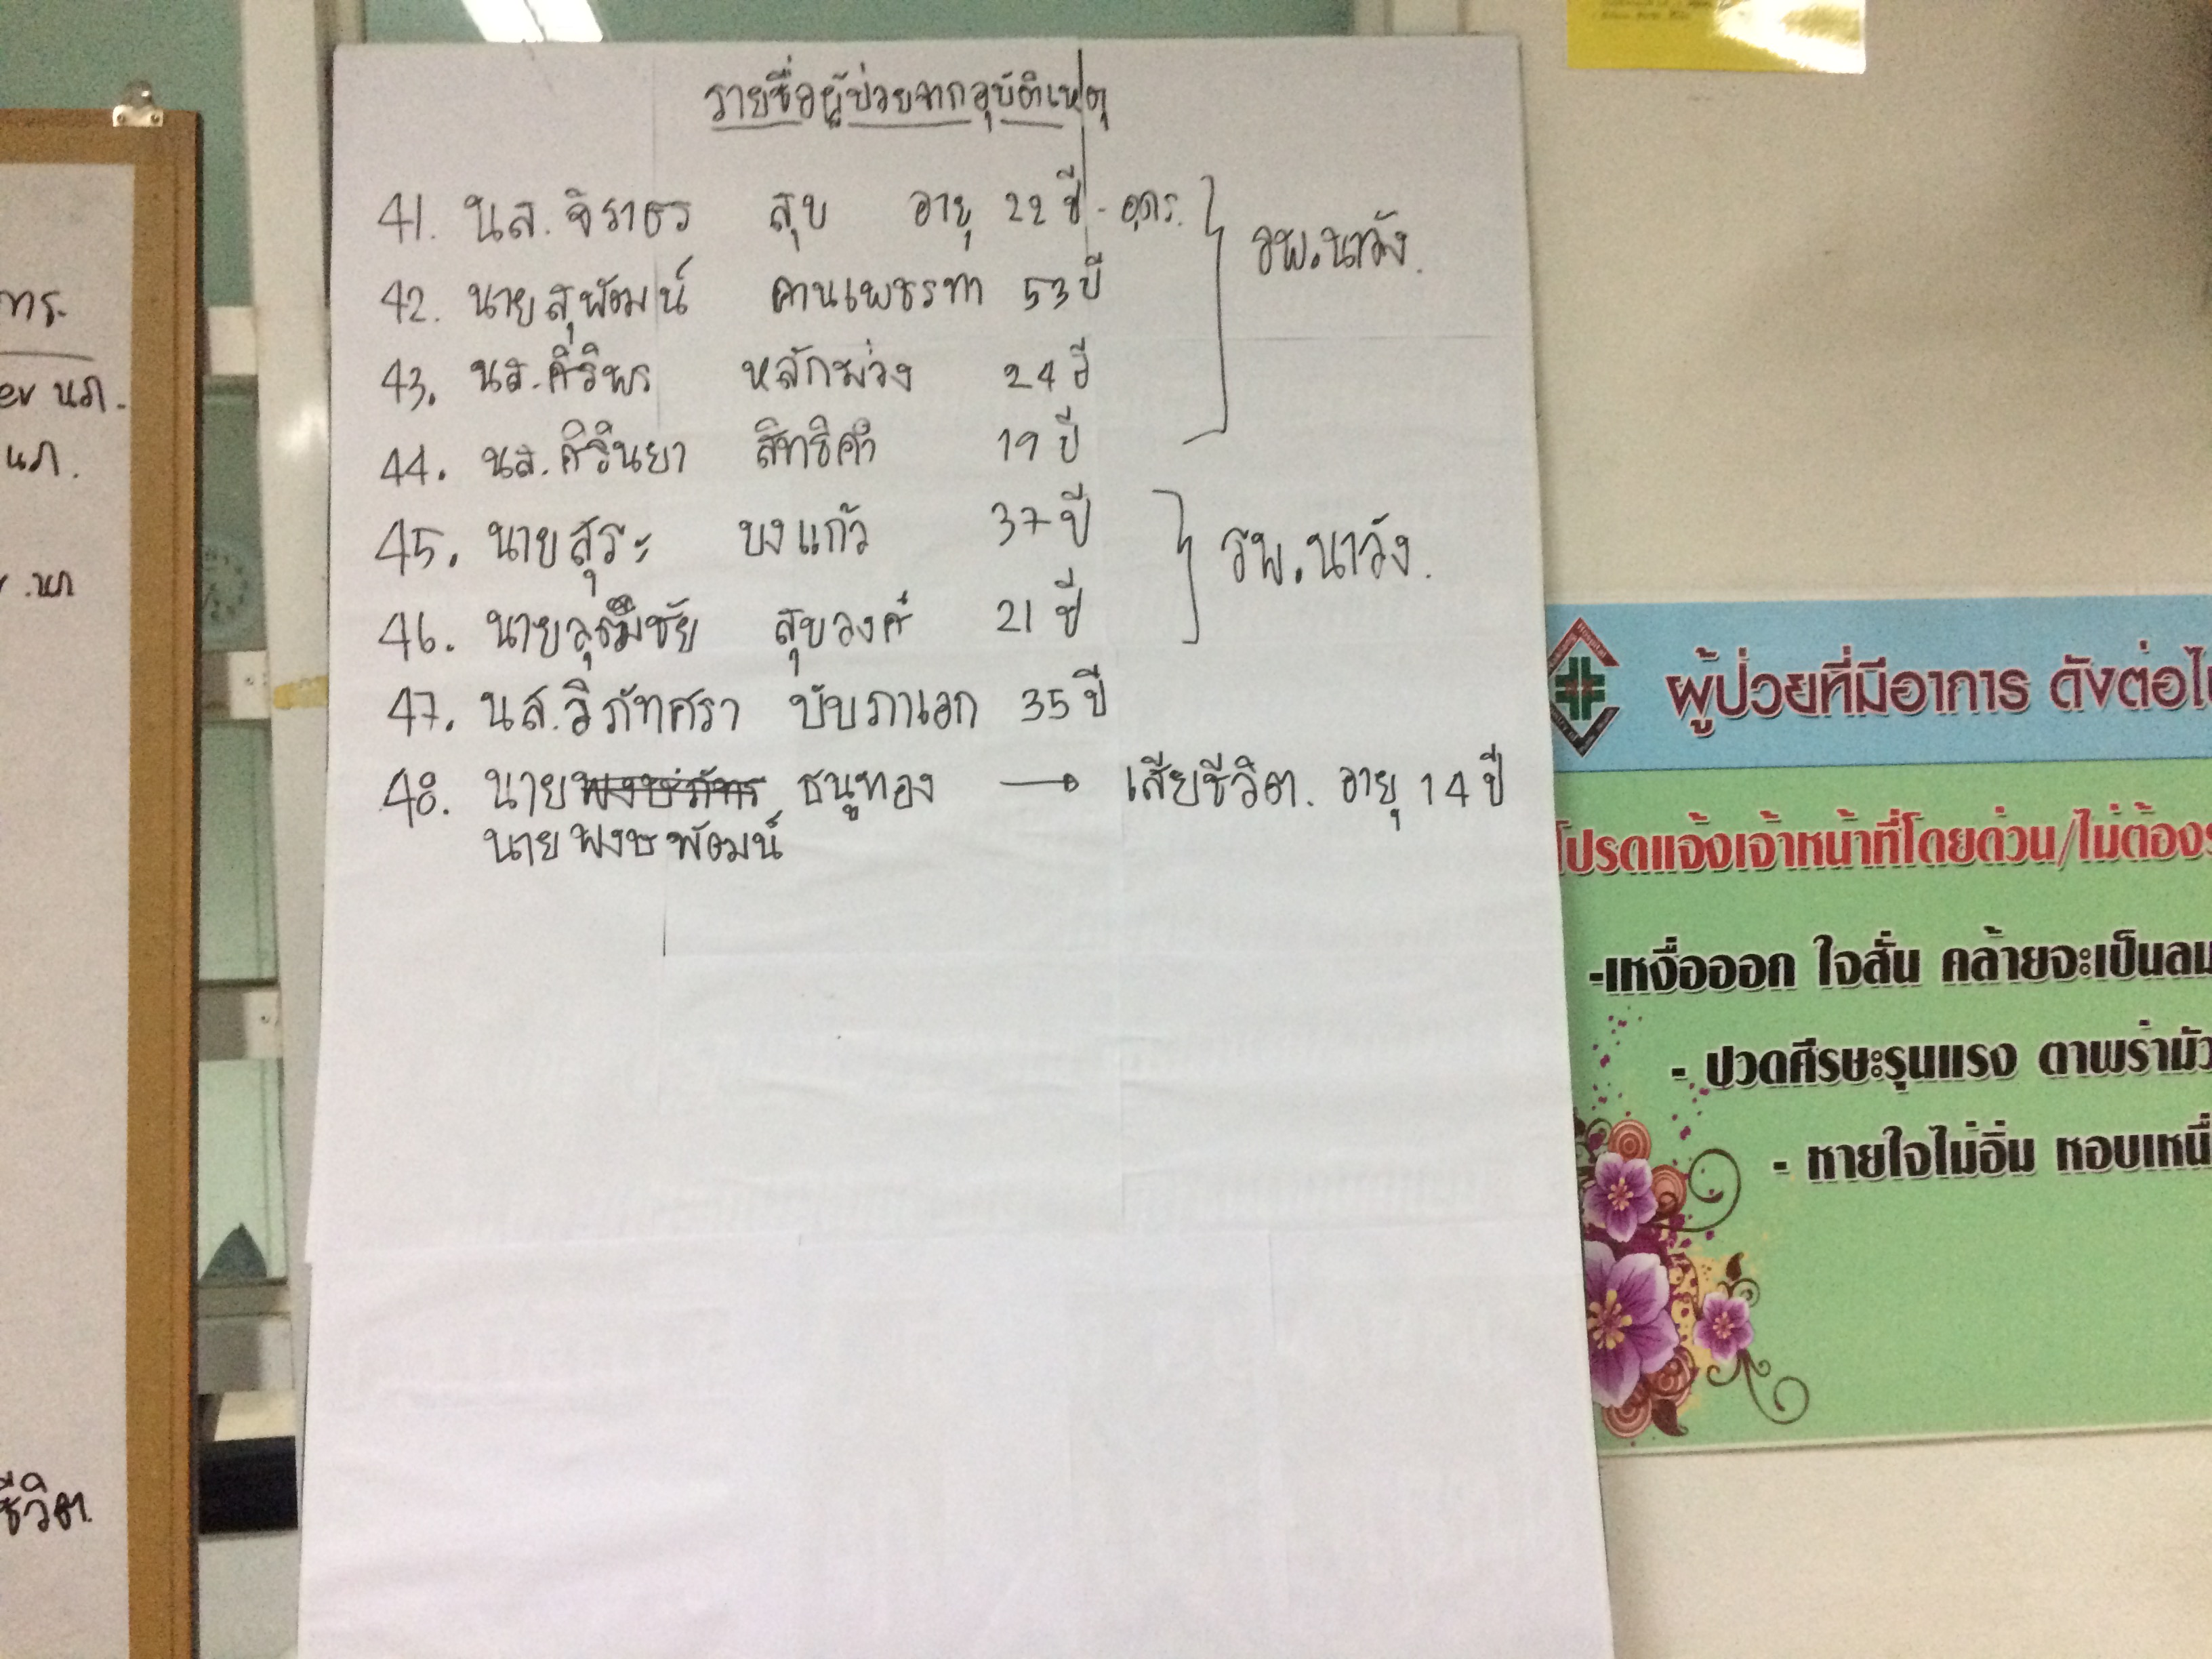 รายชื่อผู้ป่วยจากอุบัติเหตุ
41. นส.จิราธร สุข อายุ 22 ปี - อุดร.
รพ.นาวัง.
42. นายสุพัฒน์ คานเพชรทา 53 ปี
43. นส.ศิริพร หลักม่วง 24 ปี
44. นส.ศิรินยา สิทธิคำ 19 ปี
45. นายสุระ บงแก้ว 37 ปี
รพ.นาวัง.
46. สุขวงศ์ 21 ปี
47. นส.วิภัทศรา บับภาเอก 35 ปี
48. นาย ธนูทอง → เสียชีวิต. อายุ 14 ปี
นายพงษพัฒน์
นภ.
นภ.
นภ
ชีวิต.
ผู้ป่วยที่มีอาการ ดังต่อไป
โปรดแจ้งเจ้าหน้าที่โดยด่วน/ไม่ต้อง
-เหงื่อออก ใจสั่น คล้ายจะเป็นลม
- ปวดศีรษะรุนแรง ตาพร่ามัว
- หายใจไม่อิ่ม หอบเหนื่